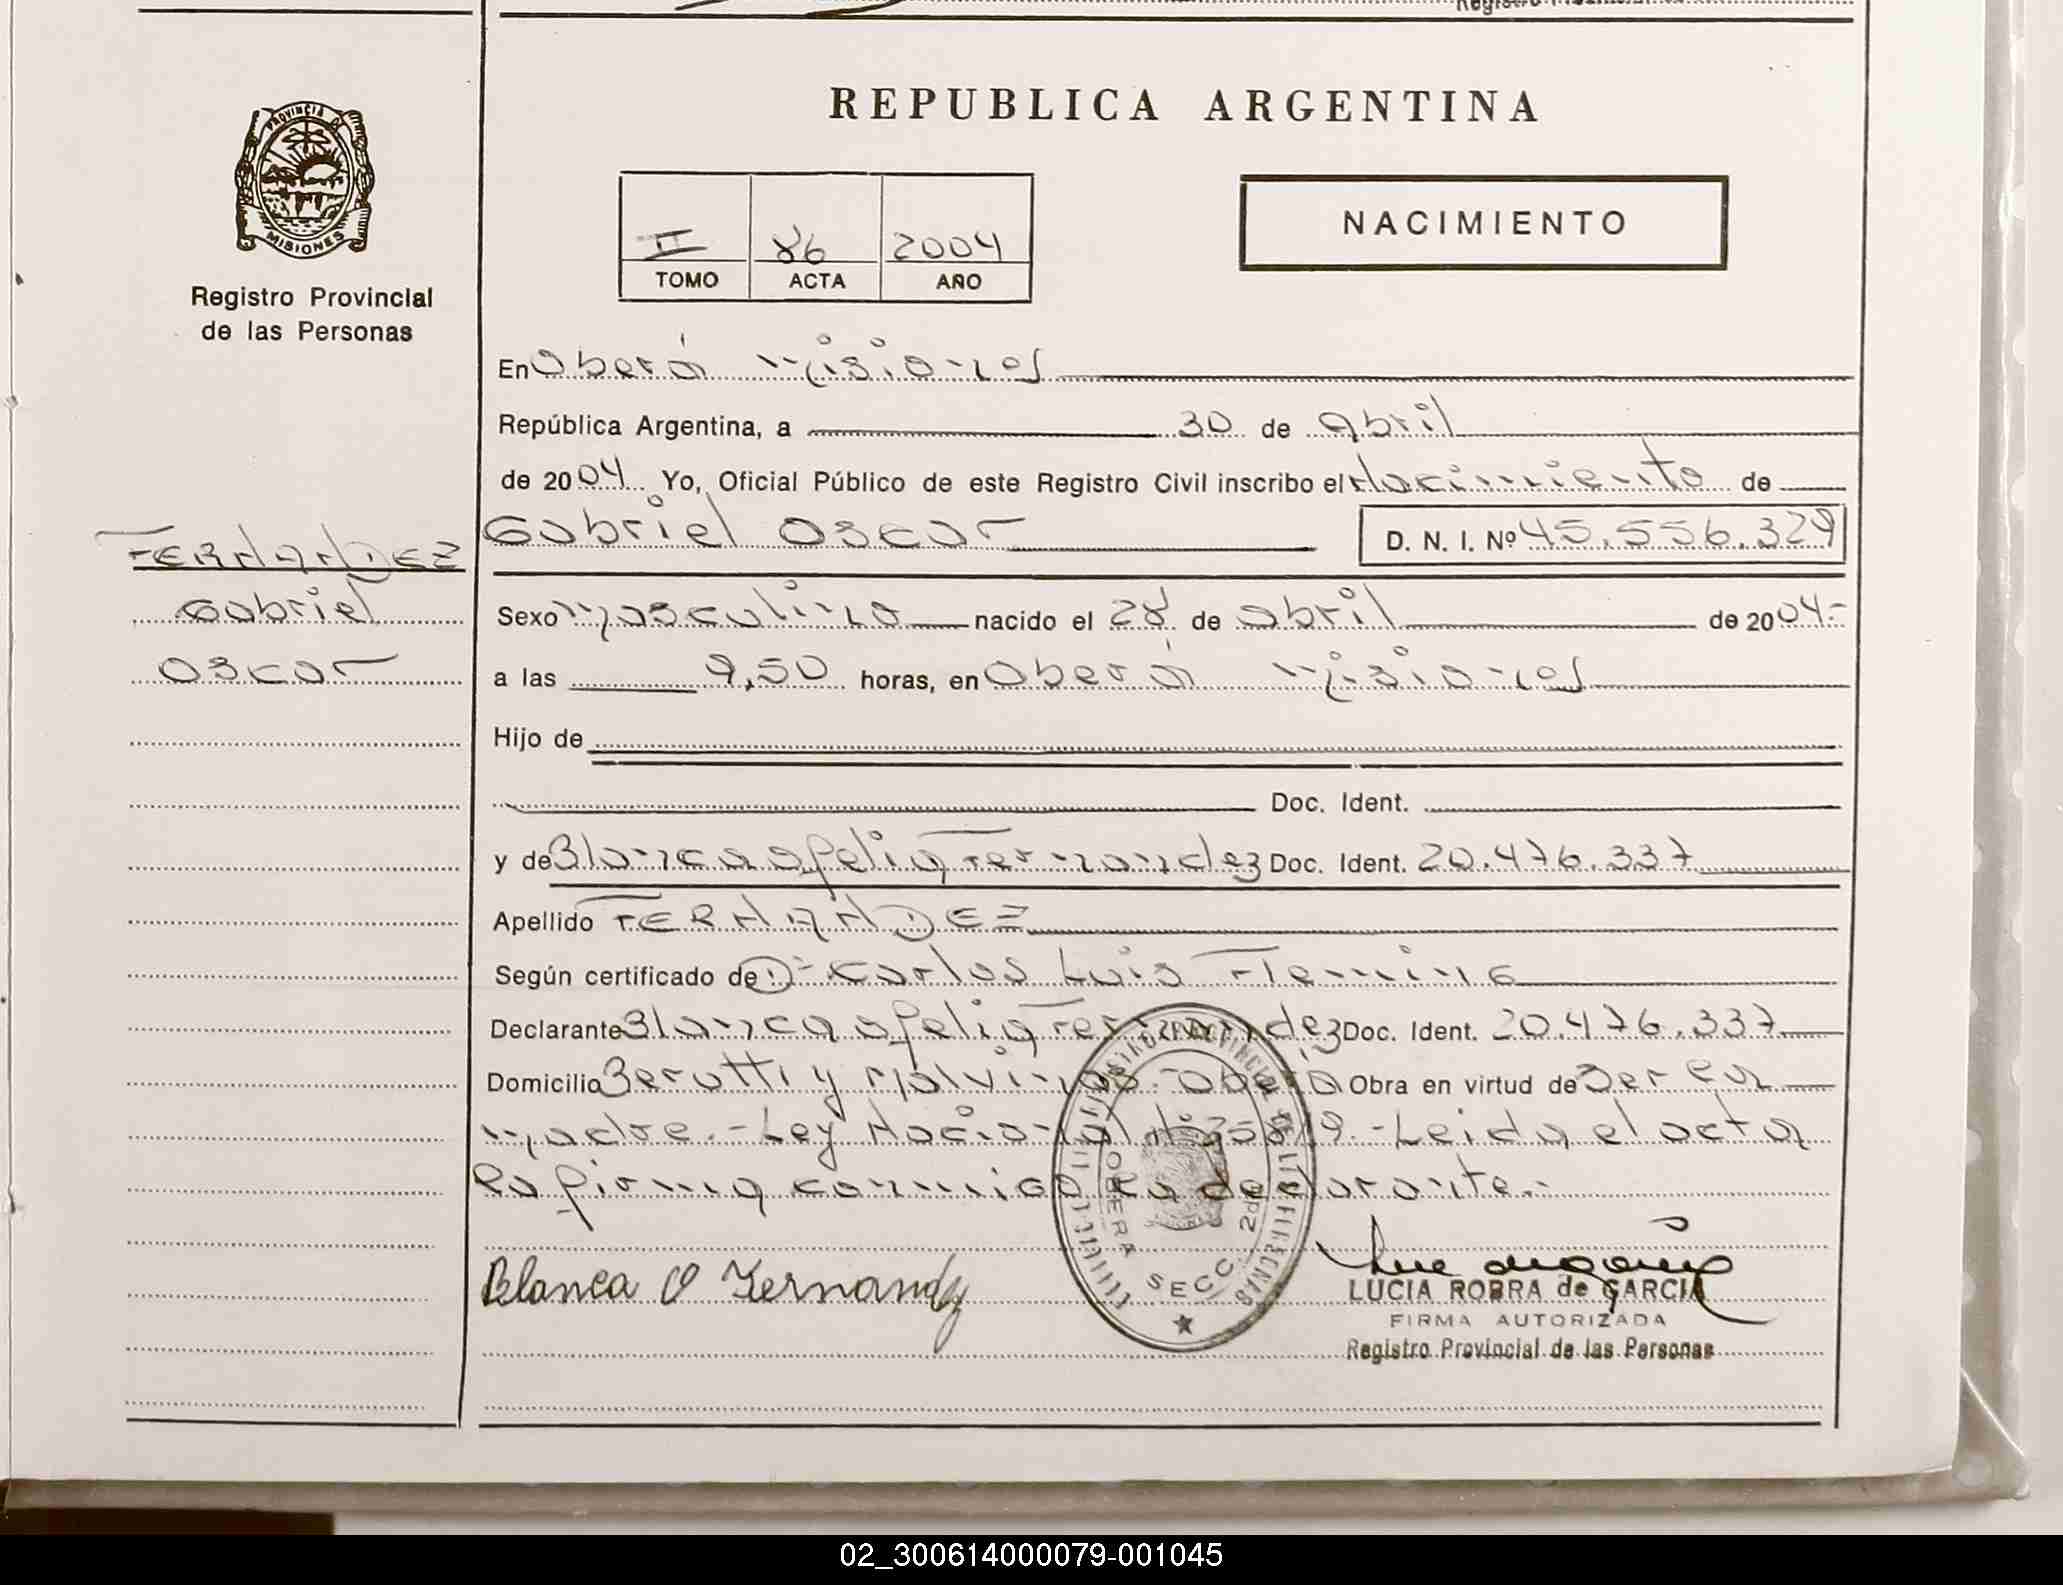 REPUBLICA ARGENTINA
PROVINCIA DE
MISIONES
Registro Provincial
de las Personas
II 86 2004
TOMO ACTA AÑO
NACIMIENTO
En Oberá Misiones
República Argentina, a 30 de abril
de 2004 Yo, Oficial Público de este Registro Civil inscribo el Nacimiento de
Gabriel Oscar D. N. I. Nº 45.556.329
FERNANDEZ
Gabriel
Oscar
Sexo Masculino nacido el 28 de abril de 2004.-
a las 9,50 horas, en Oberá Misiones
Hijo de
Doc. Ident.
y de Blanca Ofelia Fernandez Doc. Ident. 20.476.337
Apellido FERNANDEZ
Según certificado de Dr. Carlos Luis Fleming
Declarante Blanca Ofelia Fernandez Doc. Ident. 20.476.337
Domicilio Berutti y Malvinas.-Oberá Obra en virtud de Ser la
madre.-Ley Nacional Leida el acta
la firma conmigo la declarante.-
Blanca O Fernandez
OBERA SECC 2da
LUCIA ROBRA de GARCIA
FIRMA AUTORIZADA
Registro Provincial de las Personas
02_300614000079-001045